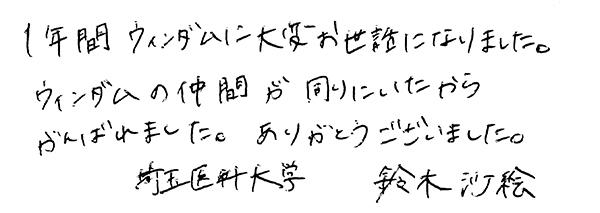 1年間ウィンダムに大変お世話になりました。
ウィンダムの仲間が周りにいたから
がんばれました。ありがとうございました。
埼玉医科大学 鈴木沙絵